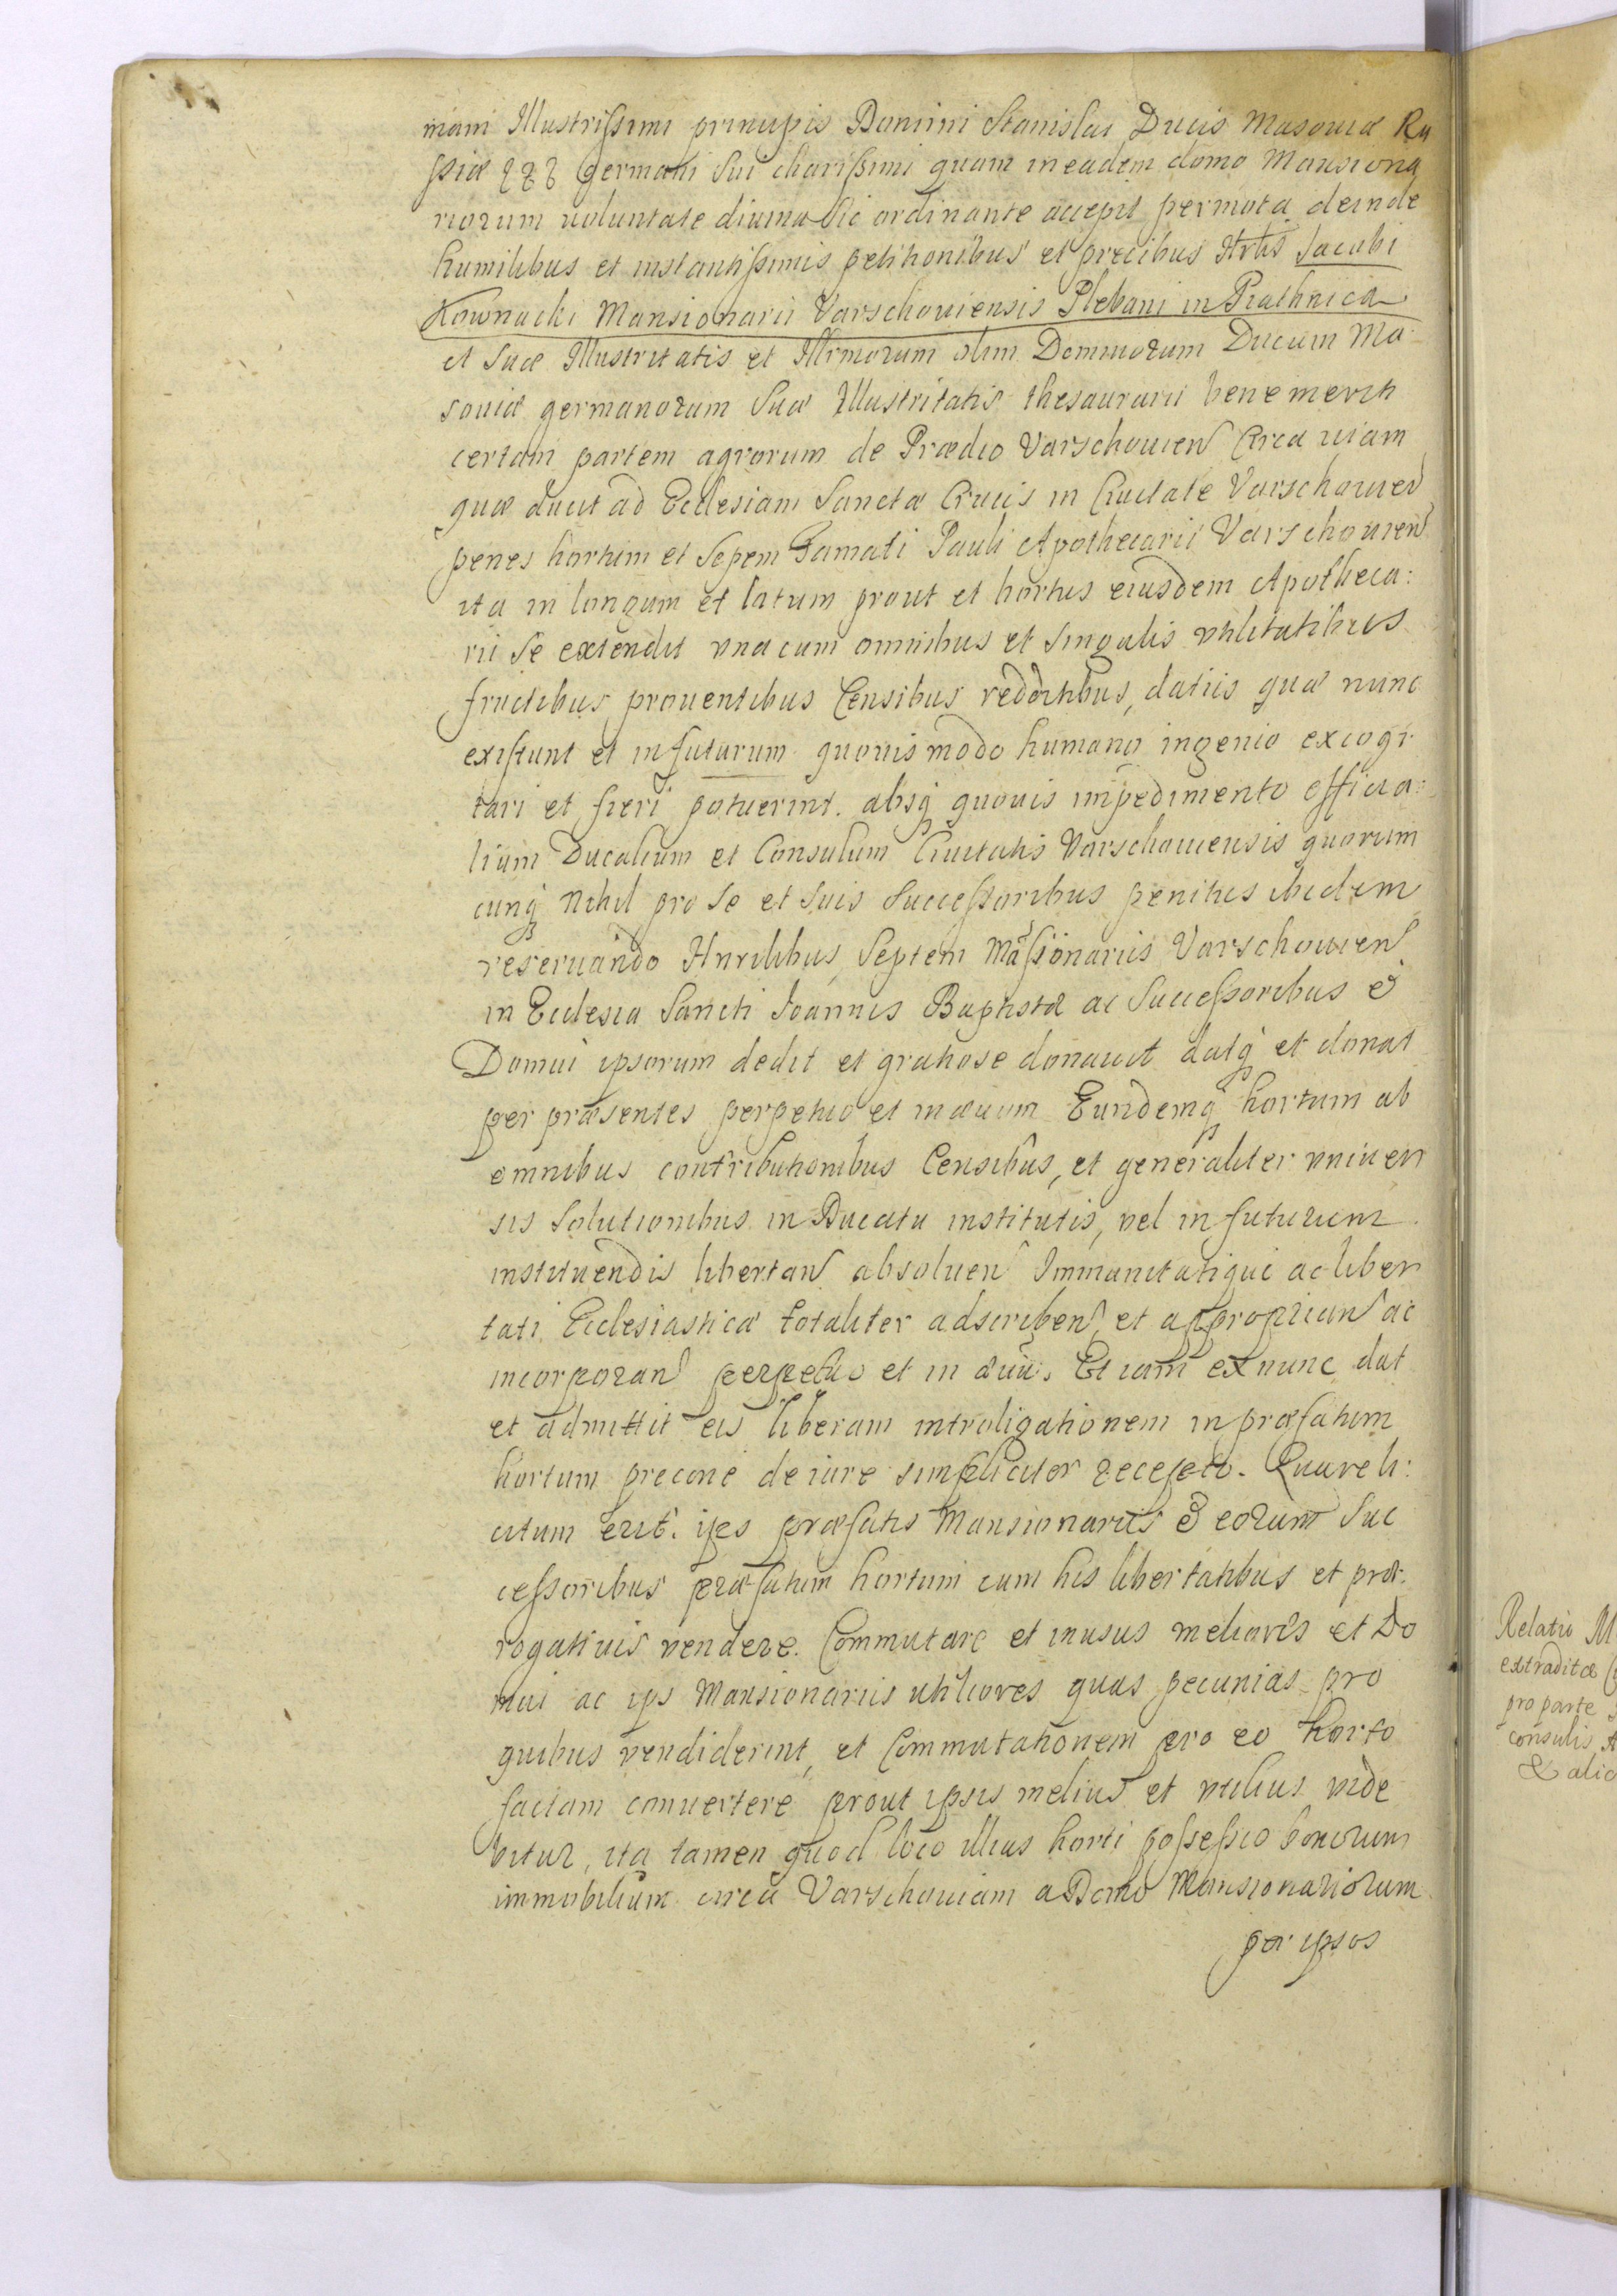 mam Illustrissimi principis Domini Stanislai Ducis Masouiæ Ru
ssiæ &&& germani Sui charissimi quam in eadem domo Mansiona
riorum uoluntate diuina Sic ordinante accepit permota deinde
humilibus et instantissimis petitionibus et precibus Hrlis Jacobi
Kownacki Mansionarii Varschouiensis Plebani in Prathnica
et Suæ Illustritatis et Illrmorum olim Dominorum Ducum Ma-
souiæ germanorum Suæ Illustritatis thesaurarii benemeriti
certam partem agrorum de Prædio Varschouien Circa uiam
quæ ducit ad Ecclesiam Sanctæ Crucis in Ciuitate Varschouien
penes hortum et Sepem Famati Pauli Apothecarii Varschouien
ita in longum et latum prout et hortus eiusdem Apotheca:
rii Se extendit vna cum omnibus et Singulis vtilitatibus
fructibus prouentibus Censibus redditibus, datiis quæ nunc
existunt et in futurum quouis modo humano ingenio excogi-
tari et fieri potuerint. absq quouis impedimento officia:
lium Ducalium et Consulum Ciuitatis Varschouiensis quorum
cunq Nihil pro Se et Suis Successoribus penitus ibidem
reseruando Hnrilibus Septem Masionariis Varschouien
in Ecclesia Sancti Joannis Baptistæ ac Successoribus &
Domui ipsorum dedit et gratiose donauit datq et donat
per præsentes perpetuo et in æuum Eundemq hortum ab
omnibus contributionibus Censibus, et generaliter vniuer
sis Solutionibus in Ducatu institutis, vel in futurum
instituendis libertan absoluen Immunitatique ac liber
tati Ecclesiasticæ totaliter adscriben, et appropian ac
incorporan perpetuo et in æuu. Et iam ex nunc dat
et admittit eis liberam introligationem in præfatum
hortum precone de iure simpliciter recepto. Quare li:
citum erit. ips præfatis Mansionariis & eorum Suc
cessoribus præfatum hortum cum his libertatibus et præ-
rogatiuis vendere. Commutare et in usus meliores et Do
mui ac ips Mansionariis vtiliores quas pecunias pro
quibus vendiderint, et Commutationem pro eo horto
factam conuertere prout ipsis melius et vtilius vide
bitur, ita tamen quod loco illius horti possessio bonorum
immobilium circa Varschouiam a Domo Mansionariorum
per ipsos
Relatio M
extraditæ
pro parte
consulis A
& alio